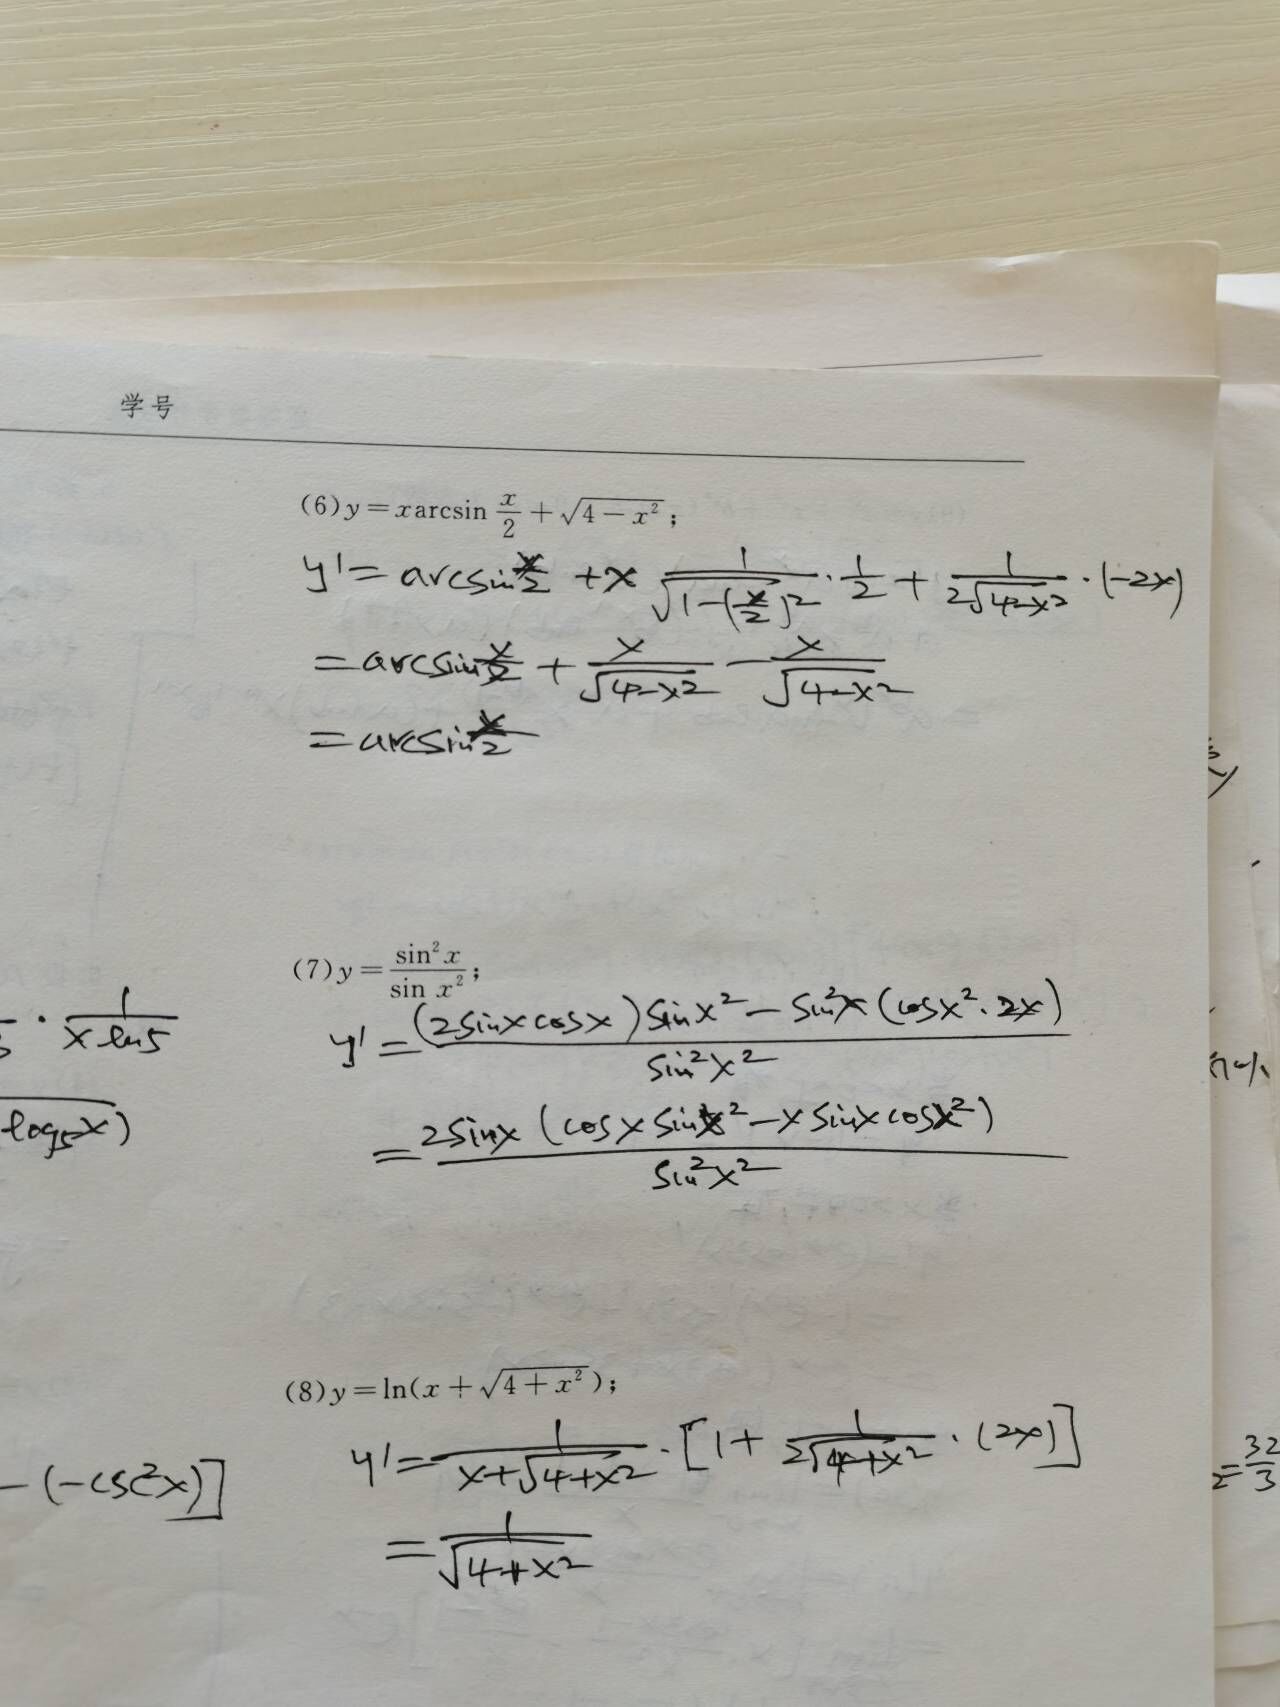 学号
(6) y = x arcsin x/2 + √(4 − x²);
y' = arcsin x/2 + x 1/√(1−(x/2)²) · 1/2 + 1/(2√(4−x²)) · (−2x)
= arcsin x/2 + x/√(4−x²) − x/√(4−x²)
= arcsin x/2
(7) y = sin² x / sin x²;
y' = ((2sinx cosx) sinx² − sin²x (cosx² · 2x)) / sin²x²
= 2sinx (cosx sinx² − x sinx cosx²) / sin²x²
· 1/(x ln5)
log₅x)
(8) y = ln(x + √(4 + x²));
y' = 1/(x+√(4+x²)) · [1 + 1/(2√(4+x²)) · (2x)]
= 1/√(4+x²)
− (−csc²x)]
2 = 32/3